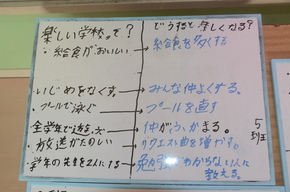 楽しい学校って?
・給食がおいしい
いじめをなくす。
プールで泳ぐ
全学年で遊ぶ
放送がたのしい
学年の先生を2人にする
どうすると楽しくなる?
給食を多くする
みんな仲よくする。
プールを直す
仲がふかまる。
リクエスト曲を増やす。
勉強がわからない人に
教える。
5班